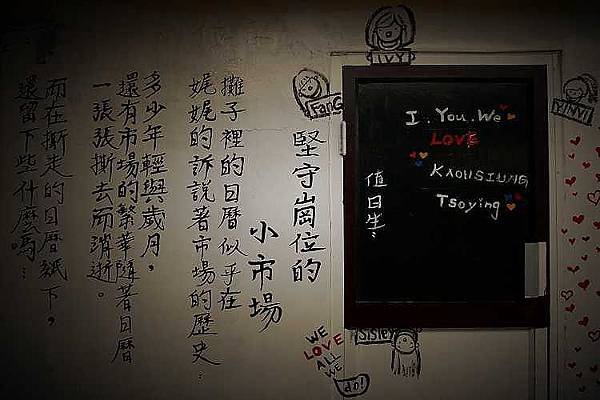 堅守崗位的
小市場
攤子裡的日曆似乎在
娓娓的訴說著市場的歷史…
多少年輕與歲月，
還有市場的繁華隨著日曆
一張張撕去而消逝。
而在撕走的日曆紙下，
還留下些什麼嗎…
IVY
FanG
YINYI
I . You . We
LOVE
KAOHSIUNG
Tsoying
值日生：
Sister
WE
LOVE
ALL
WE
do!